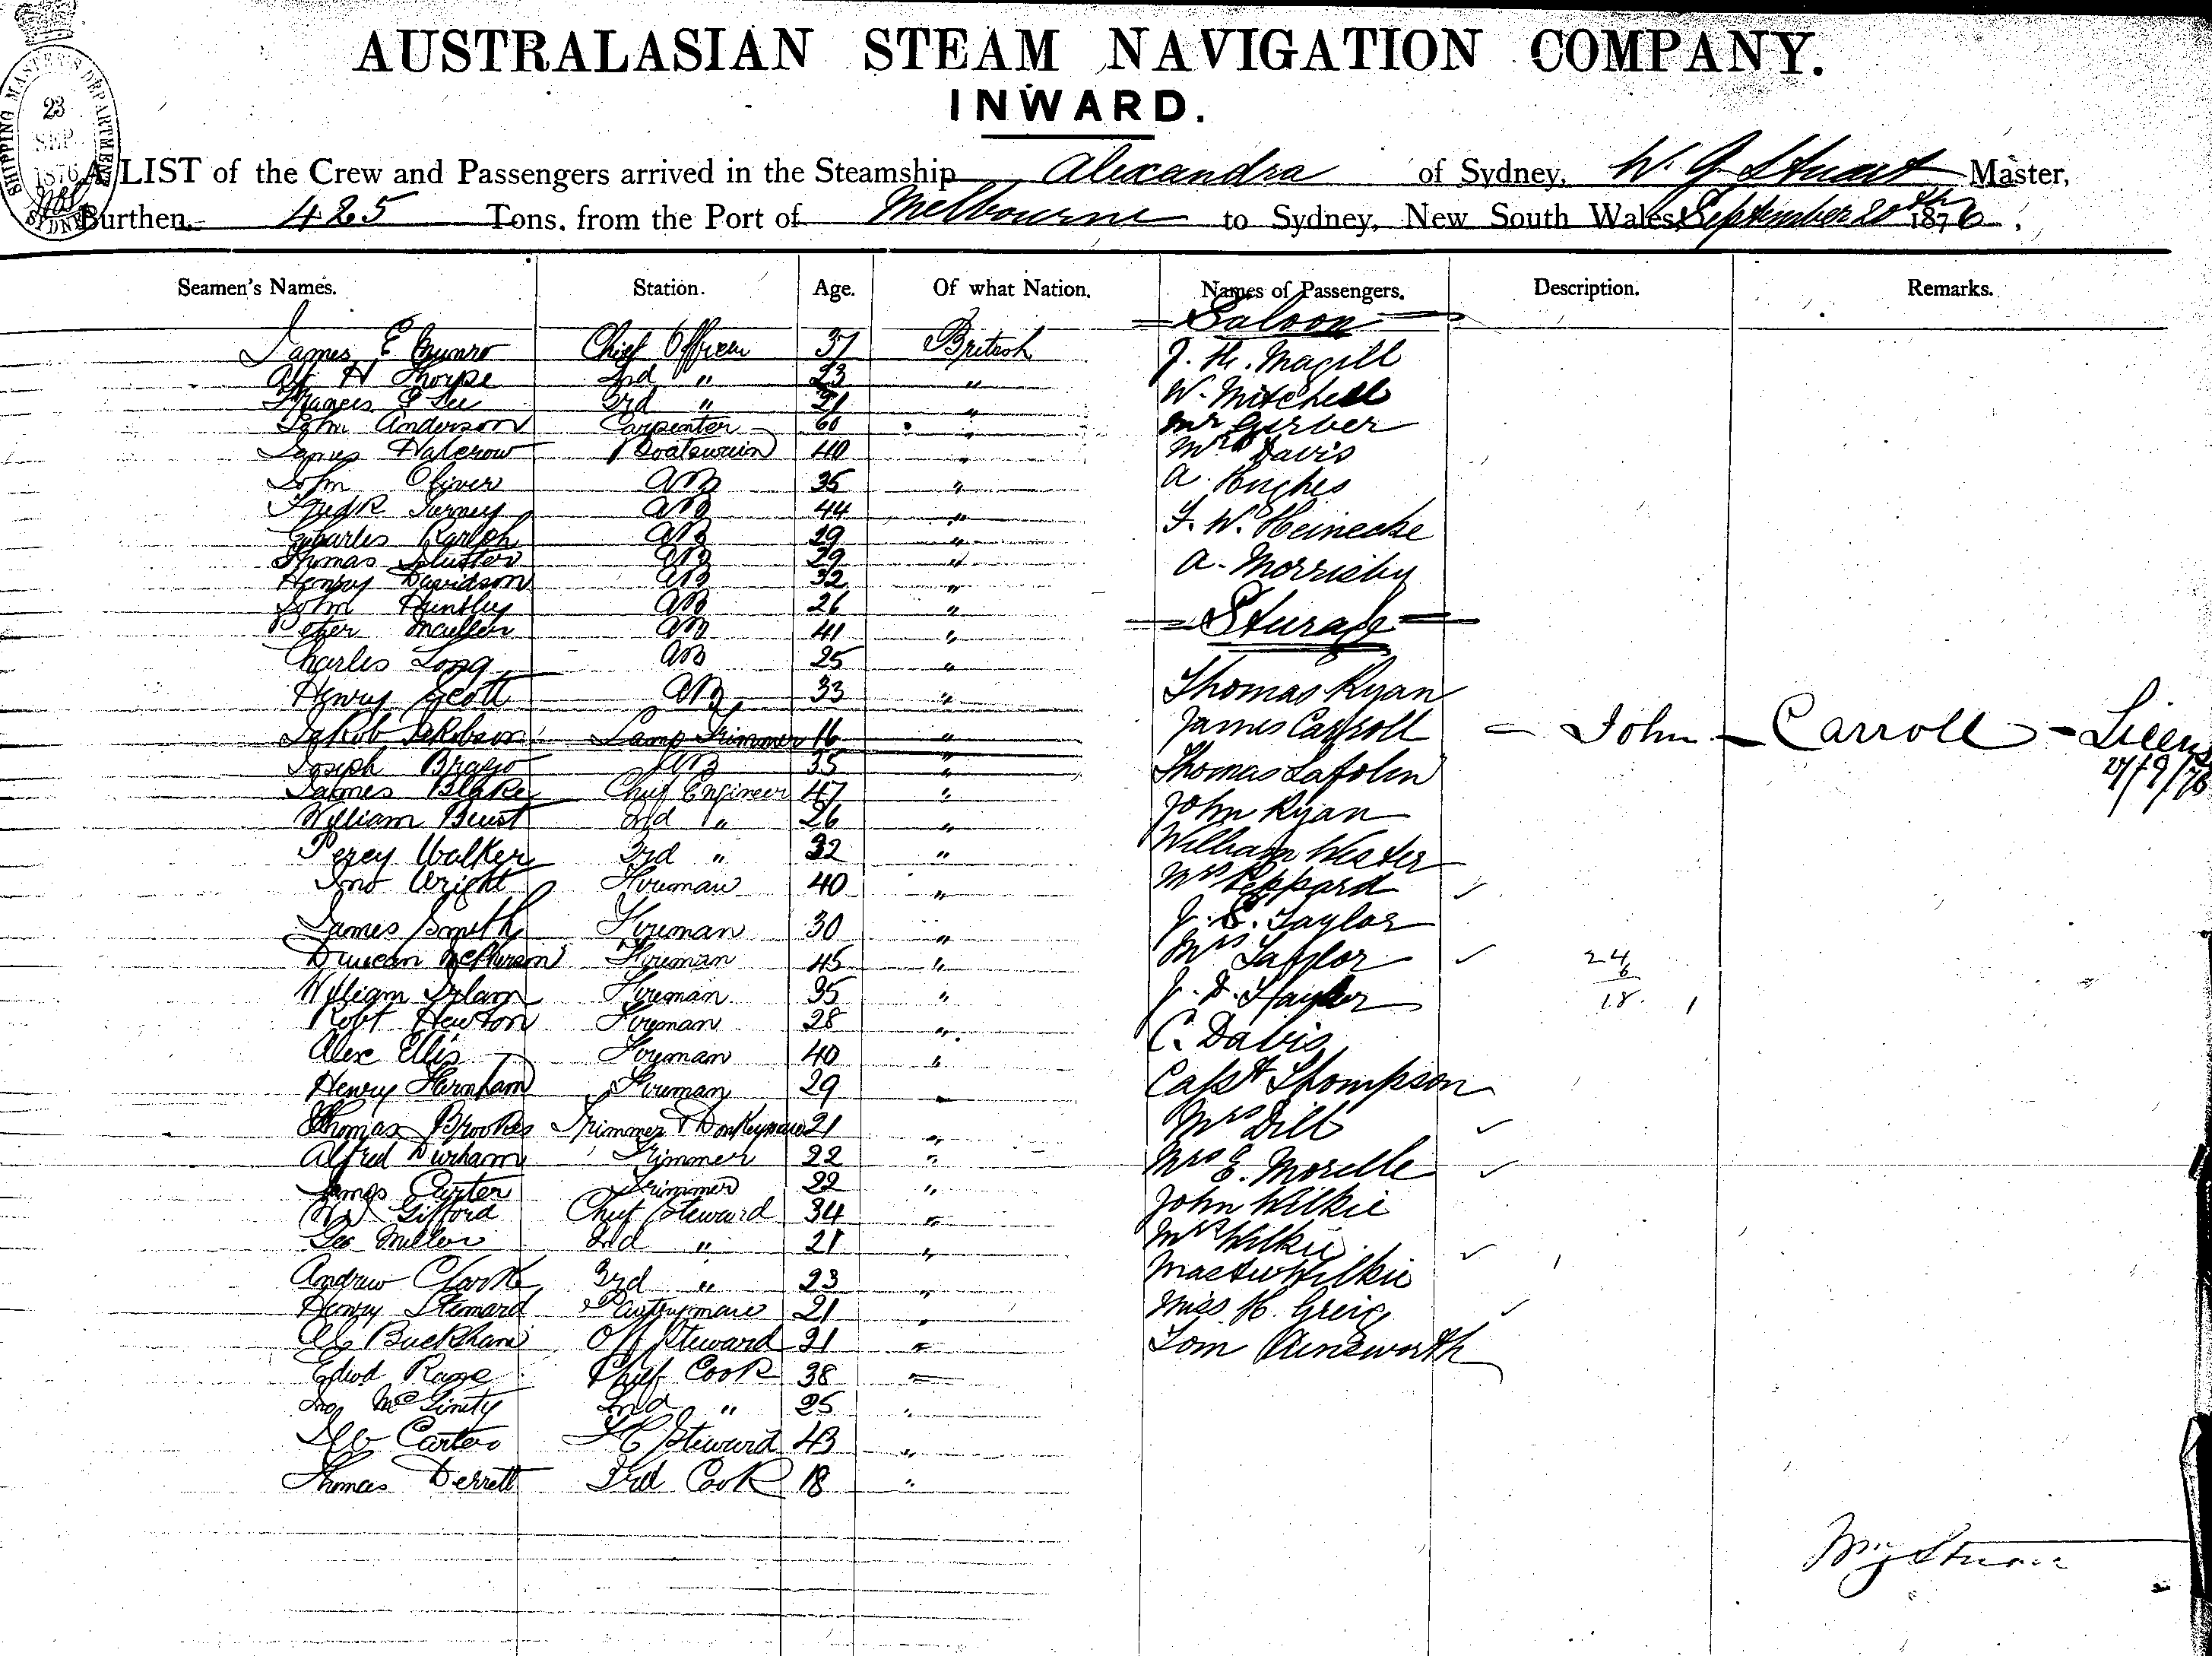 SHIPPING MASTER'S DEPARTMENT
23
SEP
1876
SYDNEY
AUSTRALASIAN STEAM NAVIGATION COMPANY.
INWARD.
A LIST of the Crew and Passengers arrived in the Steamship Alexandra of Sydney, W. G Stuart Master,
Burthen, 425 Tons, from the Port of Melbourne to Sydney, New South Wales, September 20th 1876.
Seamen's Names. Station. Age. Of what Nation. Names of Passengers. Description. Remarks.
Saloon
James E Munro Chief Officer 37 British J. H. Magill
Alf H Thorpe 2nd " 23 " W. Mitchell
Francis Lee 3rd " 21 " Mr Gerber
John Anderson Carpenter 60 " Mrs Davis
James Halcrow Boatswain 40 "
John Oliver AB 35 " A. Hughes
Fredk AB 44 " F. W. Heinecke
Charles Ralph AB 29 "
Thomas AB 29 " A. Morrisby
Henry Davidson AB 32 "
John AB 26 " Steerage
Peter AB 41 "
Charles Long AB 25 "
Henry Scott AB 33 " Thomas Ryan
Jakob Jakobson Lamp Trimmer 16 " James Carroll – John – Carroll – Licens
27/9/76
Joseph AB 35 " Thomas
James Blake Chief Engineer 47 " John Ryan
William 2nd " 26 "
Percy Walker 3rd " 32 " William Wester
Jno Wright Fireman 40 " Mrs Peppard
James Smith Fireman 30 " J. S. Taylor
Duncan McPherson Fireman 45 " Mrs Taylor 24
William Fireman 35 " J. 6
18
Robt Newton Fireman 28 " C. Davis
Alex Ellis Fireman 40 "
Henry Farnham Fireman 29 " Capt Thompson
Thomas Brookes Trimmer & Donkeyman 21 " Mrs Dill
Alfred Durham Trimmer 22 " Mrs E. Morelle
James Carter Trimmer 22 " John Wilkie
Gifford Chief Steward 34 "
Geo Miller 2nd " 21 " Mrs Wilkie
Andrew Clark 3rd " 23 " Master Wilkie
Henry Pantryman 21 " Miss H. Greig
Buckham Off Steward 21 " Tom Ainsworth
Edwd Chief Cook 38 "
Jno McGinity 2nd " 25 "
Carter F C Steward 43 "
Thomas Derrett 3rd Cook 18 "